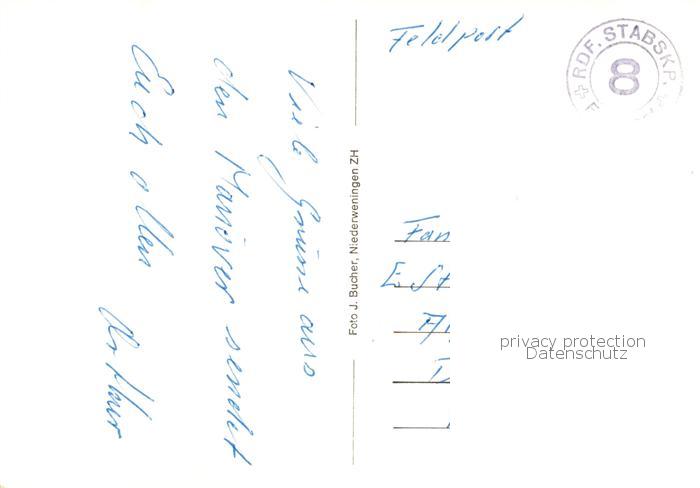 Feldpost
+ RDF. STABSKP. +
8
Viele Grüsse aus
den Manöver sendet
Euch allen
Arthur
Foto J. Bucher, Niederweningen ZH
Fam
E. St
privacy protection
Datenschutz